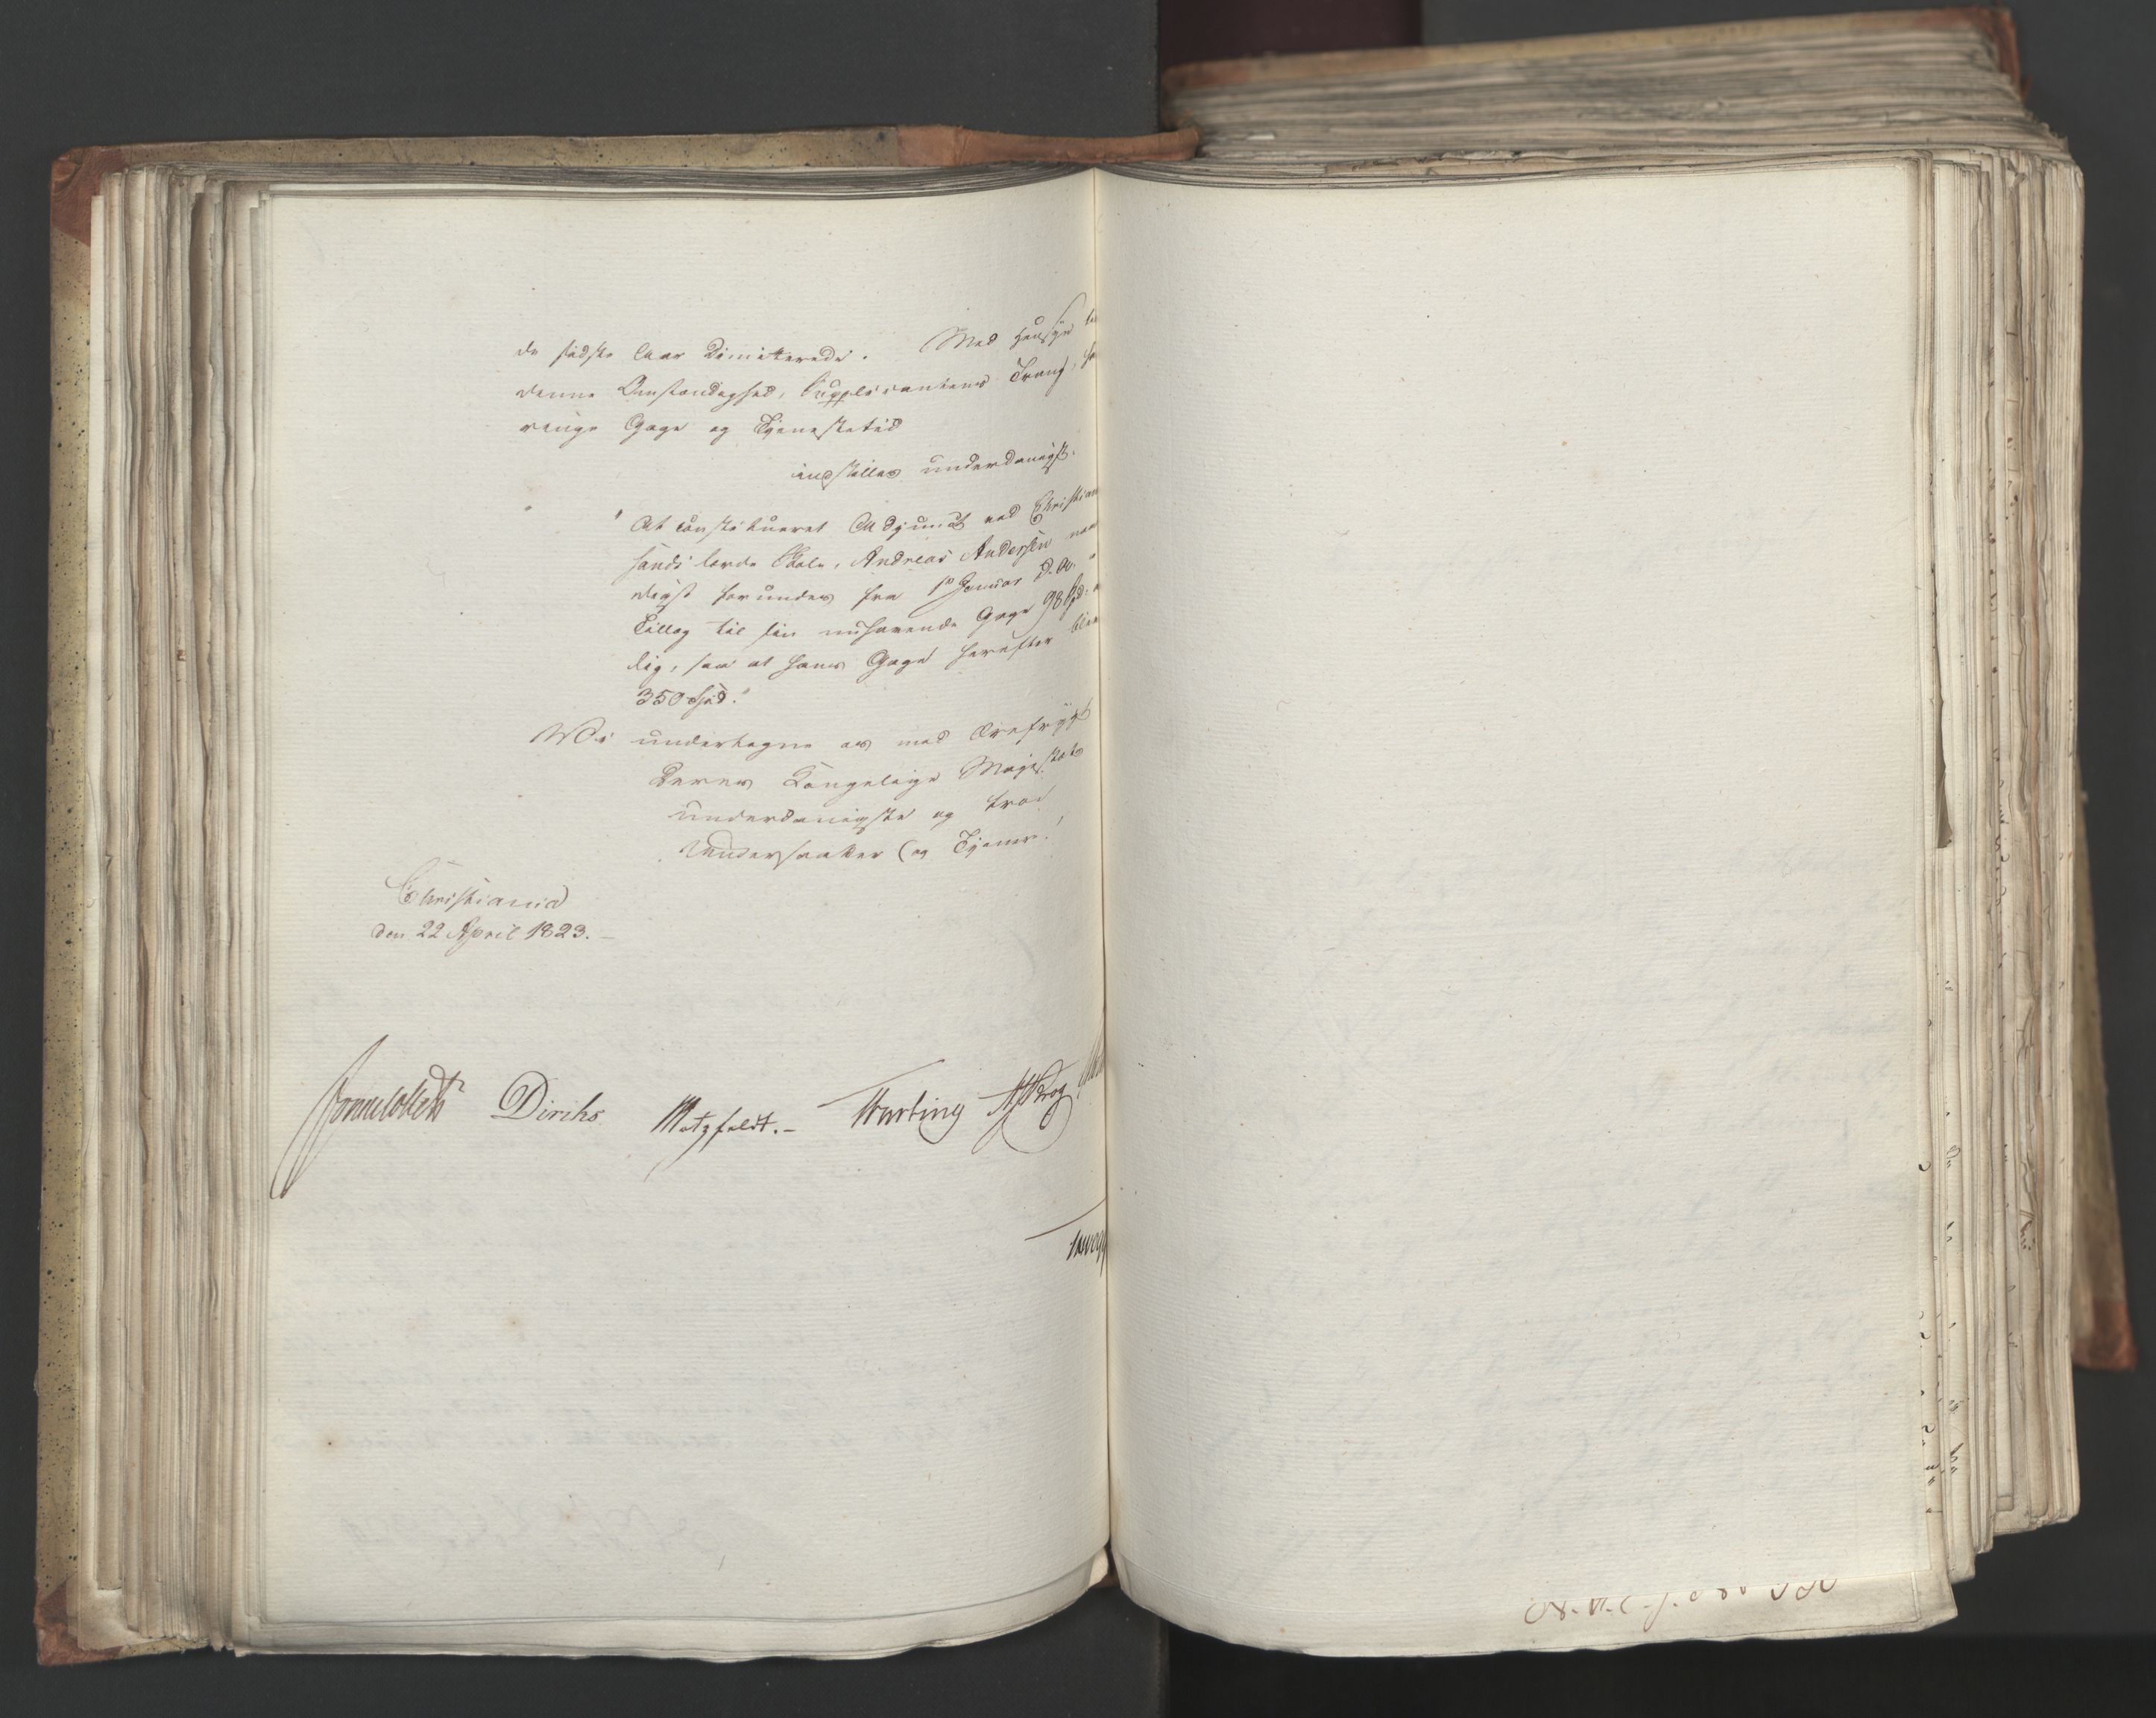 de sidste Aar Dimitterede. Med Hensyn til
denne Omstændighed, Supplicantens Trang,
ringe Gage og Tjenestetid
indstilles underdanigst:
"At constitueret Adjunct ved Christian
sands lærde Skole, Andreas Andersen naa
digst forundes fra 1ste Januar d. A.
Tillæg til sin nuhavende Gage 98 Spd:
lig, saa at hans Gage herefter bliver
350 Spd."
Vi undertegne os med Ærefrygt
Deres Kongelige Majestæts
underdanigste og troe
Undersaatter (og Tjener.)
Christiania
den 22 April 1823.
Sommerhielm Diriks Motzfeldt. Treschow Krog